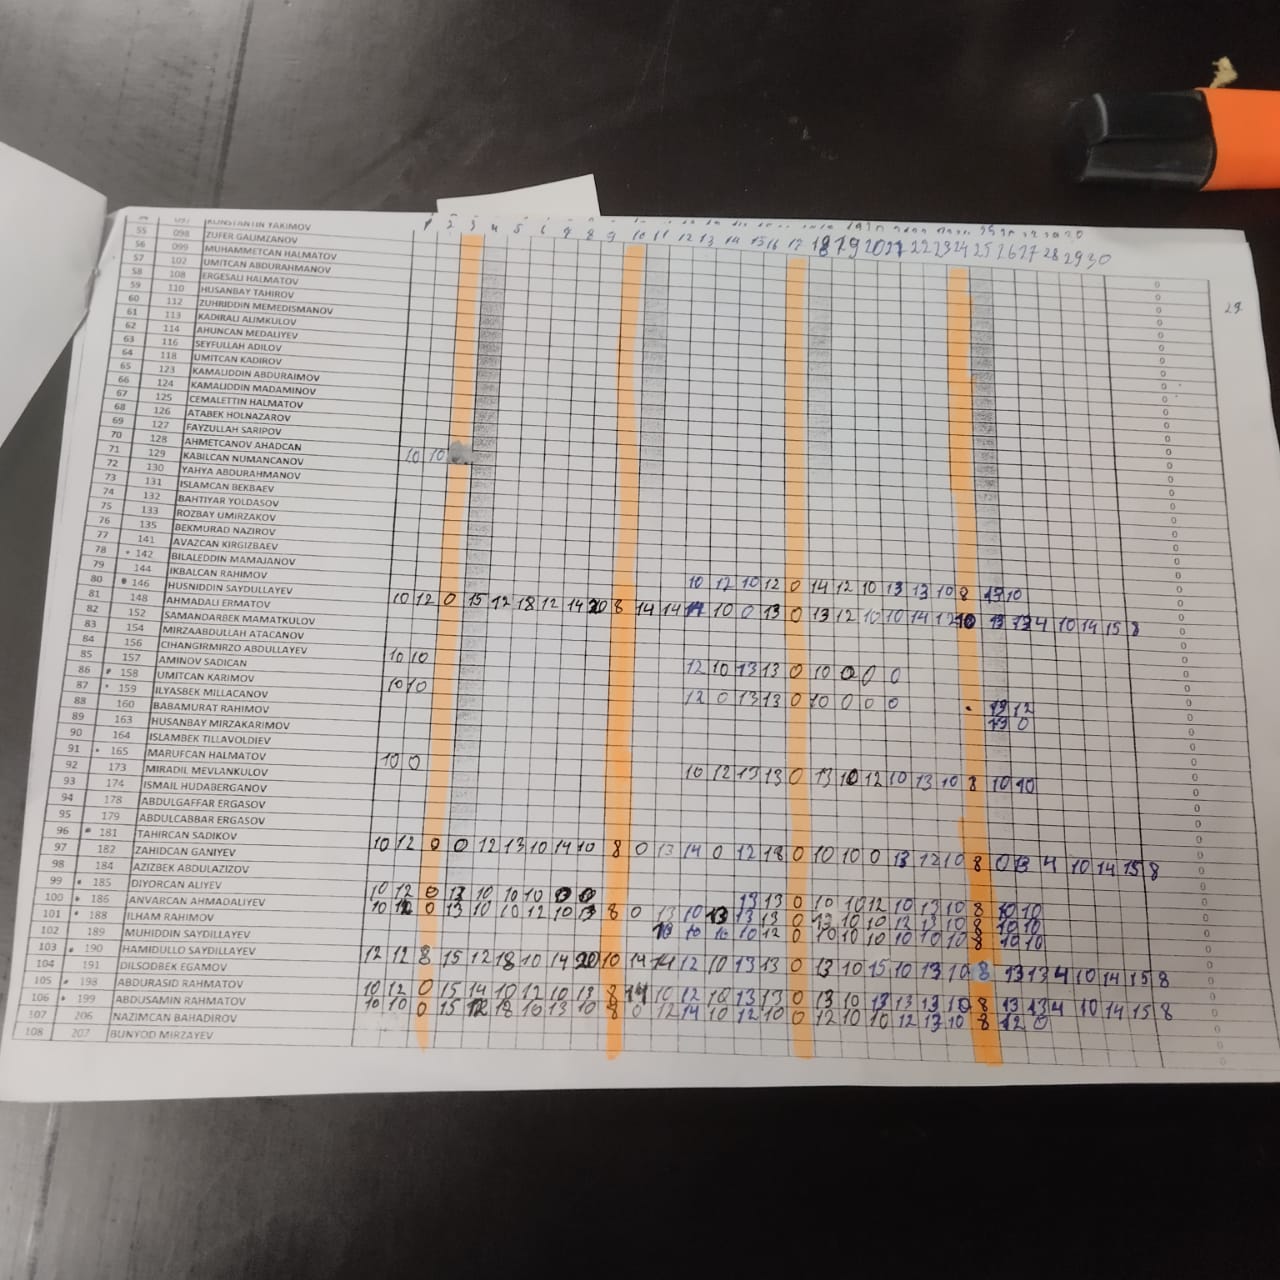 097 KONSTANTIN YAKIMOV
55 098 ZUFER GAUMZANOV
56 099 MUHAMMETCAN HALMATOV
57 102 UMITCAN ABDURAHMANOV
58 108 ERGESALI HALMATOV
59 110 HUSANBAY TAHIROV
60 112 ZUHRIDDIN MEMEDISMANOV
61 113 KADIRALI ALIMKULOV
62 114 AHUNCAN MEDALIYEV
63 116 SEYFULLAH ADILOV
64 118 UMITCAN KADIROV
65 123 KAMALIDDIN ABDURAIMOV
66 124 KAMALIDDIN MADAMINOV
67 125 CEMALETTIN HALMATOV
68 126 ATABEK HOLNAZAROV
69 127 FAYZULLAH SARIPOV
70 128 AHMETCANOV AHADCAN
71 129 KABILCAN NUMANCANOV 10 10
72 130 YAHYA ABDURAHMANOV
73 131 ISLAMCAN BEKBAEV
74 132 BAHTIYAR YOLDASOV
75 133 ROZBAY UMIRZAKOV
76 135 BEKMURAD NAZIROV
77 141 AVAZCAN KIRGIZBAEV
78 142 BILALEDDIN MAMAJANOV
79 144 IKBALCAN RAHIMOV
80 146 HUSNIDDIN SAYDULLAYEV 10 12 10 12 0 14 12 10 13 13 10 8 13 10
81 148 AHMADALI ERMATOV 10 12 0 15 12 18 12 14 20 8 14 14 14 10 0 13 0 13 12 10 10 14 12 10 13 13 4 10 14 15 8
82 152 SAMANDARBEK MAMATKULOV
83 154 MIRZAABDULLAH ATACANOV
84 156 CIHANGIRMIRZO ABDULLAYEV
85 157 AMINOV SADICAN 10 10 12 10 13 13 0 10 0 0 0
86 158 UMITCAN KARIMOV
87 159 ILYASBEK MILLACANOV 10 10 12 0 13 13 0 10 0 0 0 13 12
88 160 BABAMURAT RAHIMOV 13 0
89 163 HUSANBAY MIRZAKARIMOV
90 164 ISLAMBEK TILLAVOLDIEV
91 165 MARUFCAN HALMATOV
92 173 MIRADIL MEVLANKULOV 10 0 10 12 13 13 0 13 10 12 10 13 10 8 10 10
93 174 ISMAIL HUDABERGANOV
94 178 ABDULGAFFAR ERGASOV
95 179 ABDULCABBAR ERGASOV
96 181 TAHIRCAN SADIKOV
97 182 ZAHIDCAN GANIYEV 10 12 0 0 12 13 10 14 10 8 0 13 14 0 12 18 0 10 10 0 13 12 10 8 0 13 4 10 14 15 8
98 184 AZIZBEK ABDULAZIZOV
99 185 DIYORCAN ALIYEV
100 186 ANVARCAN AHMADALIYEV 10 12 0 13 10 10 10 0 0 13 13 0 10 10 12 10 13 10 8 10 10
101 188 ILHAM RAHIMOV 10 12 0 13 10 10 12 10 13 8 0 13 10 13 13 13 0 13 10 10 13 13 10 8 10 10
102 189 MUHIDDIN SAYDILLAYEV 10 10 10 10 12 0 10 10 10 10 10 10 8 10 10
103 190 HAMIDULLO SAYDILLAYEV
104 191 DILSODBEK EGAMOV 12 12 8 15 12 18 10 14 20 10 14 14 12 10 13 13 0 13 10 15 10 13 10 8 13 13 4 10 14 15 8
105 198 ABDURASID RAHMATOV
106 199 ABDUSAMIN RAHMATOV 10 12 0 15 14 10 12 10 13 8 14 10 12 10 13 13 0 13 10 13 13 13 10 8 13 13 4 10 14 15 8
107 206 NAZIMCAN BAHADIROV 10 10 0 15 12 18 16 13 10 8 0 12 14 10 12 10 0 12 10 10 12 13 10 8 12 0
108 207 BUNYOD MIRZAYEV